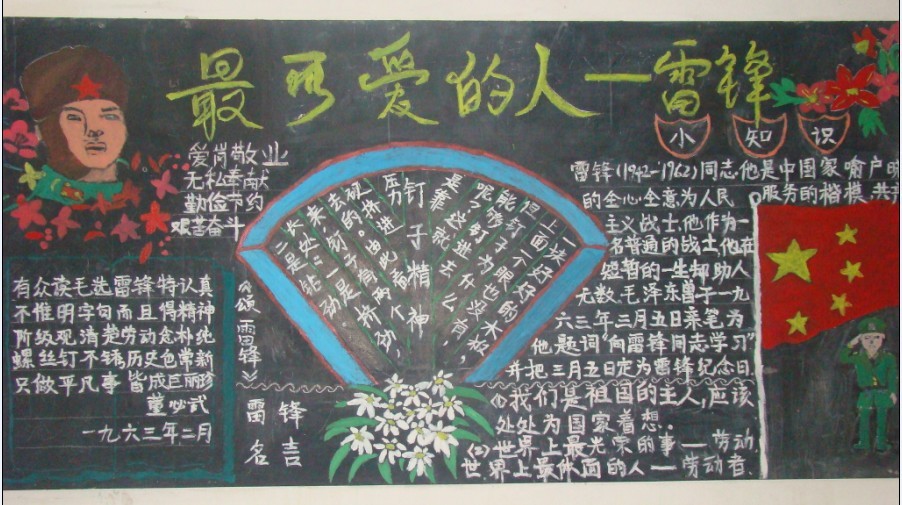 最可爱的人一雷锋
小 知 识
爱岗敬业
无私奉献
勤俭节约
艰苦奋斗
雷锋(1942-1962)同志,他是中国家喻户晓
的全心全意为人民服务的楷模,共
主义战士,他作为一
名普通的战士,他在
短暂的一生却助人
无数,毛泽东曾于一九
六三年三月五日亲笔为
他题词“向雷锋同志学习”
并把三月五日定为雷锋纪念日.
一块好好的木板,
上面一个眼也没有,
钉子精神
有众读毛选雷锋特认真
不惟明字句而且得精神
阶级观清楚劳动念朴纯
螺丝钉不锈历史色常新
只做平凡事 皆成巨丽珍
董必武
一九六三年二月
《颂雷锋》
雷锋
名言
(1)我们是祖国的主人,应该
处处为国家着想.
(2)世界上最光荣的事—劳动
世界上最体面的人—劳动者.